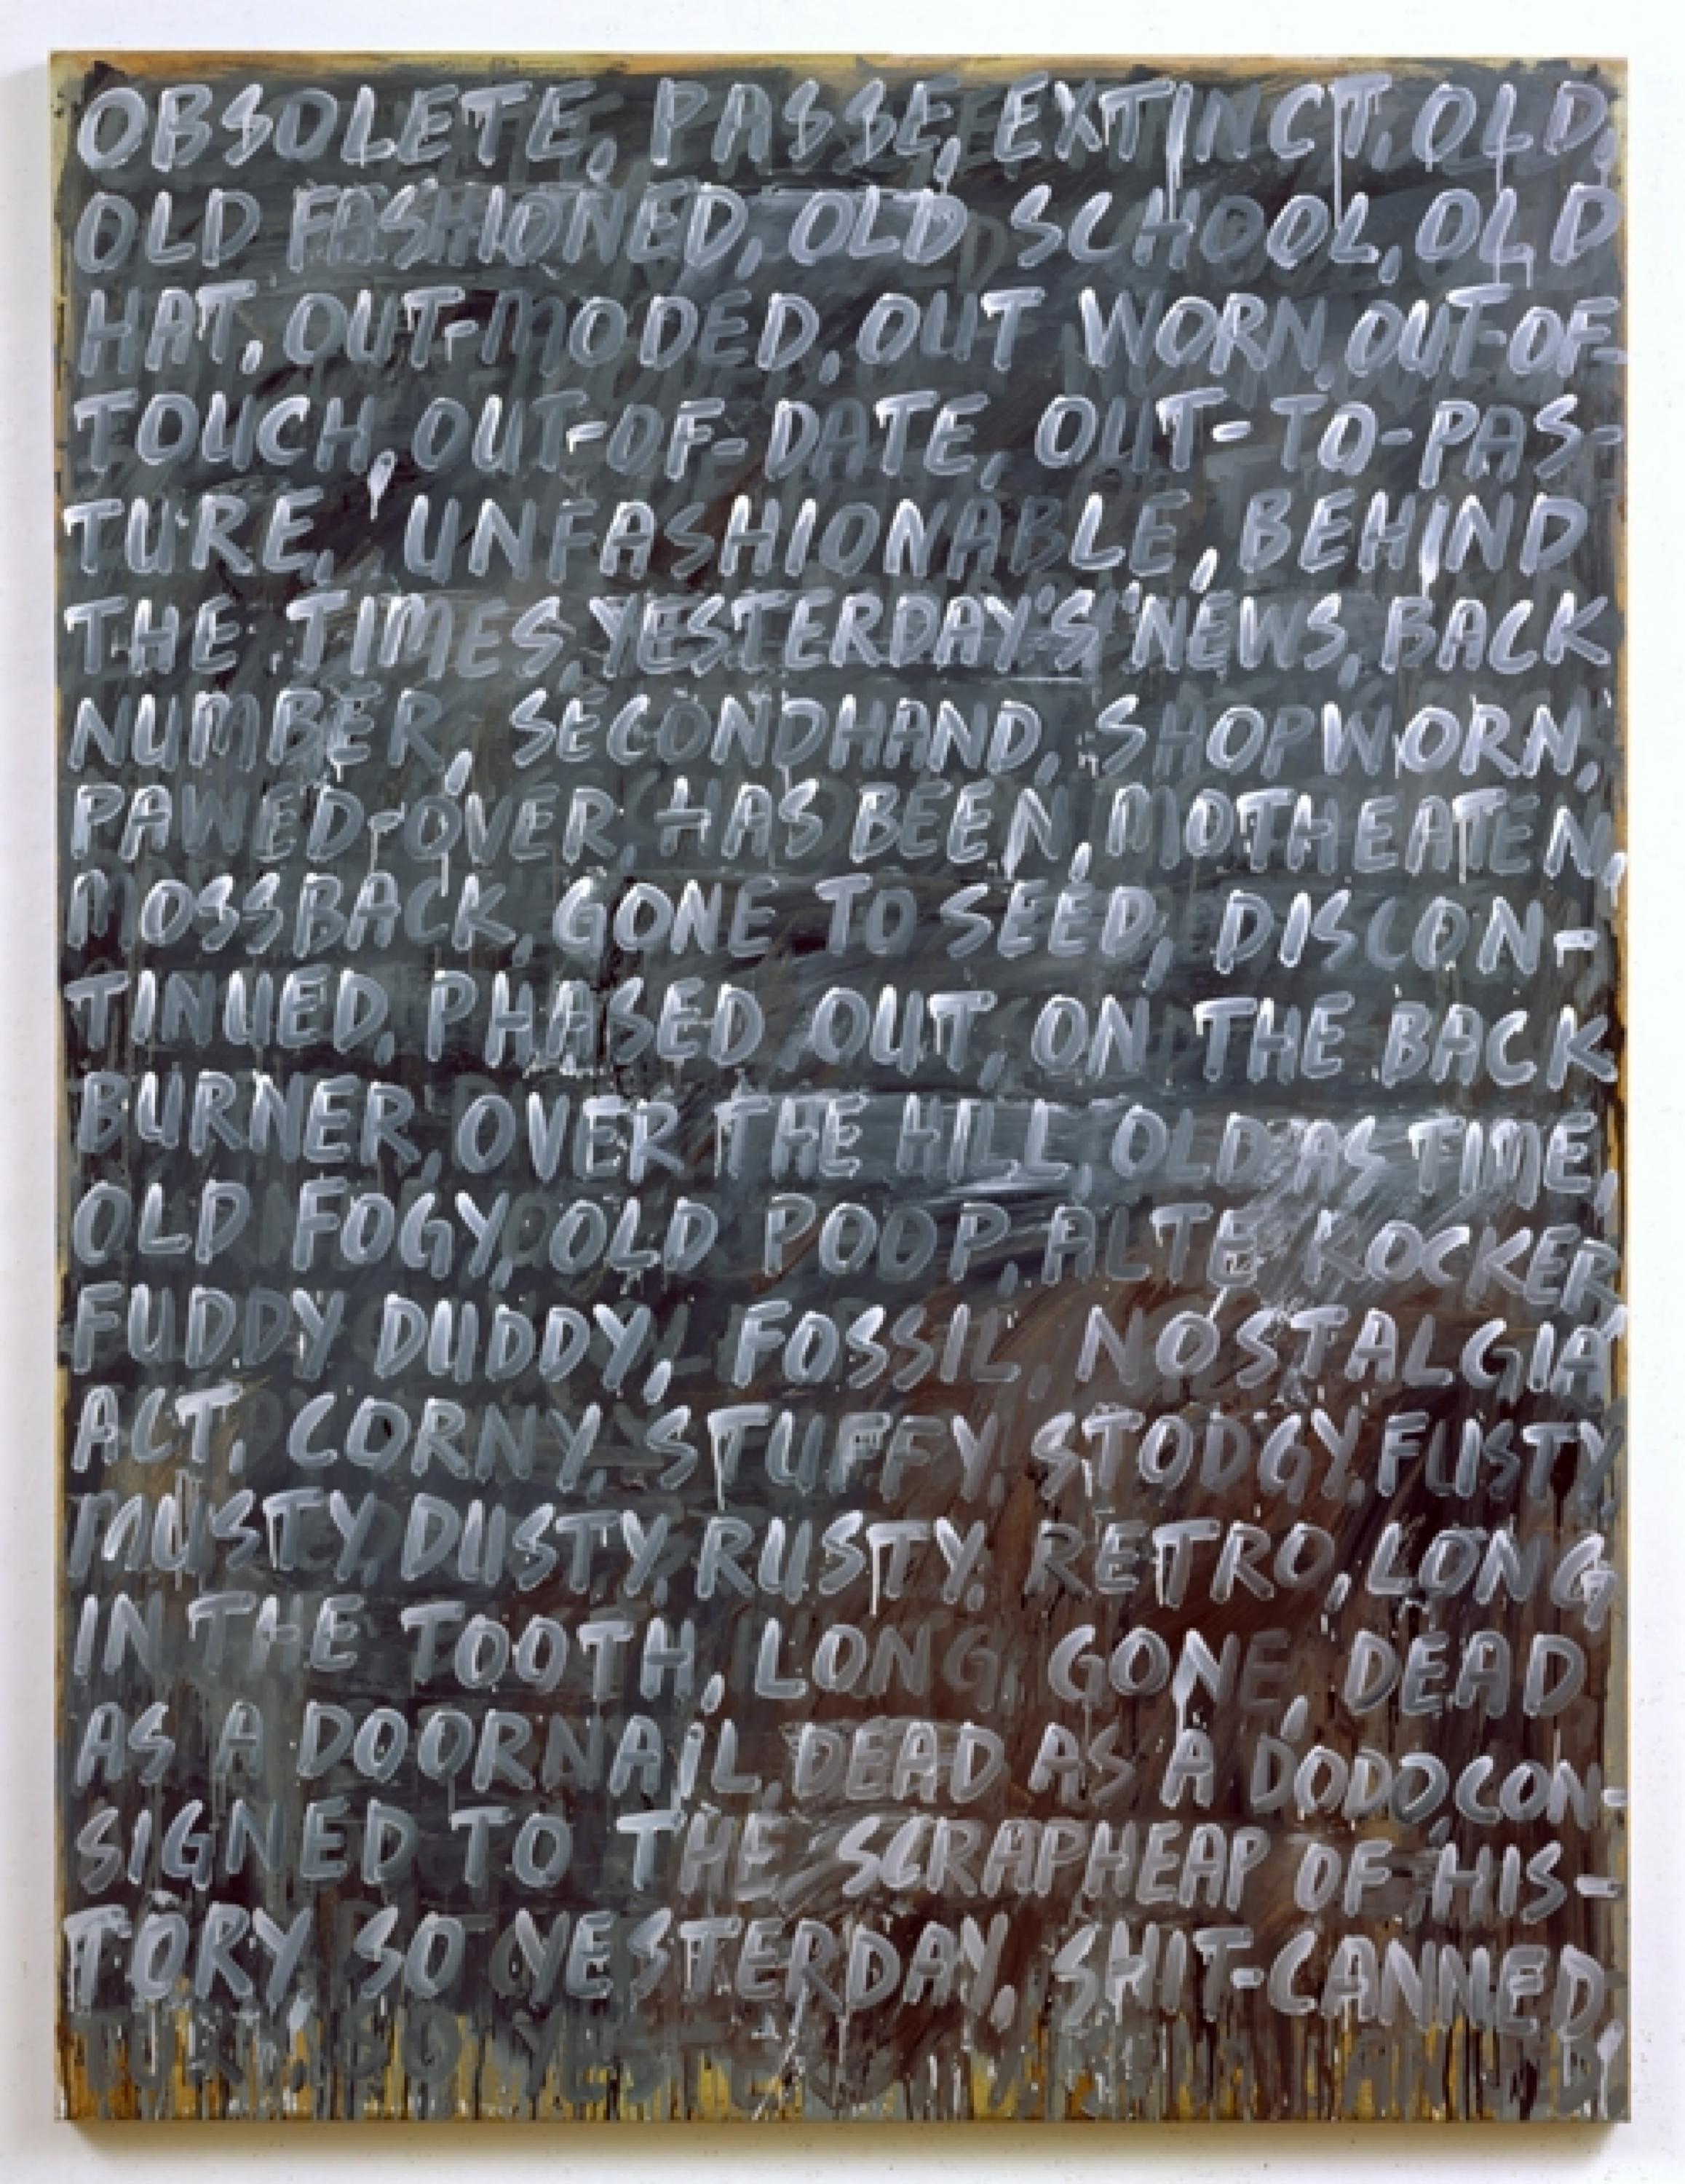 OBSOLETE, PASSE, EXTINCT, OLD,
OLD FASHIONED, OLD SCHOOL, OLD
HAT, OUT-MODED, OUT WORN, OUT-OF-
TOUCH, OUT-OF-DATE, OUT-TO-PAS-
TURE, UNFASHIONABLE, BEHIND
THE TIMES, YESTERDAY'S NEWS, BACK
NUMBER, SECONDHAND, SHOPWORN,
PAWED-OVER, HAS BEEN, MOTHEATEN,
MOSSBACK, GONE TO SEED, DISCON-
TINUED, PHASED OUT, ON THE BACK
BURNER, OVER THE HILL, OLD AS TIME,
OLD FOGY, OLD POOP, ALTE KOCKER,
FUDDY DUDDY, FOSSIL, NOSTALGIA
ACT, CORNY, STUFFY, STODGY, FUSTY,
MUSTY, DUSTY, RUSTY, RETRO, LONG
IN THE TOOTH, LONG GONE, DEAD
AS A DOORNAIL, DEAD AS A DODO, CON-
SIGNED TO THE SCRAPHEAP OF HIS-
TORY SO YESTERDAY, SHIT-CANNED,